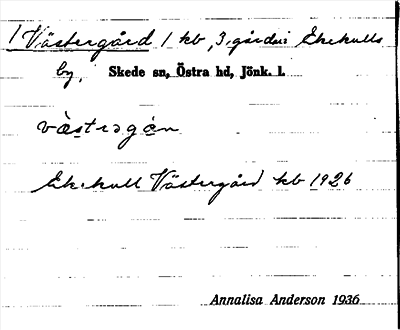 1 Västergård 1 kb, 3 gårdar i Ekekulls
by, Skede sn, Östra hd, Jönk. l.
vàstrəgán
Ekekull Västergård kb 1926
Annalisa Anderson 1936